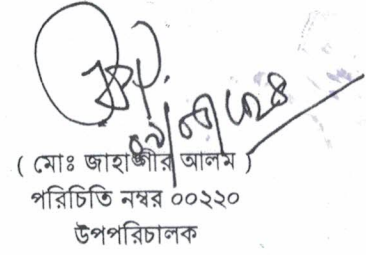 ( মোঃ জাহাঙ্গীর আলম )
পরিচিতি নম্বর ০০২২০
উপপরিচালক